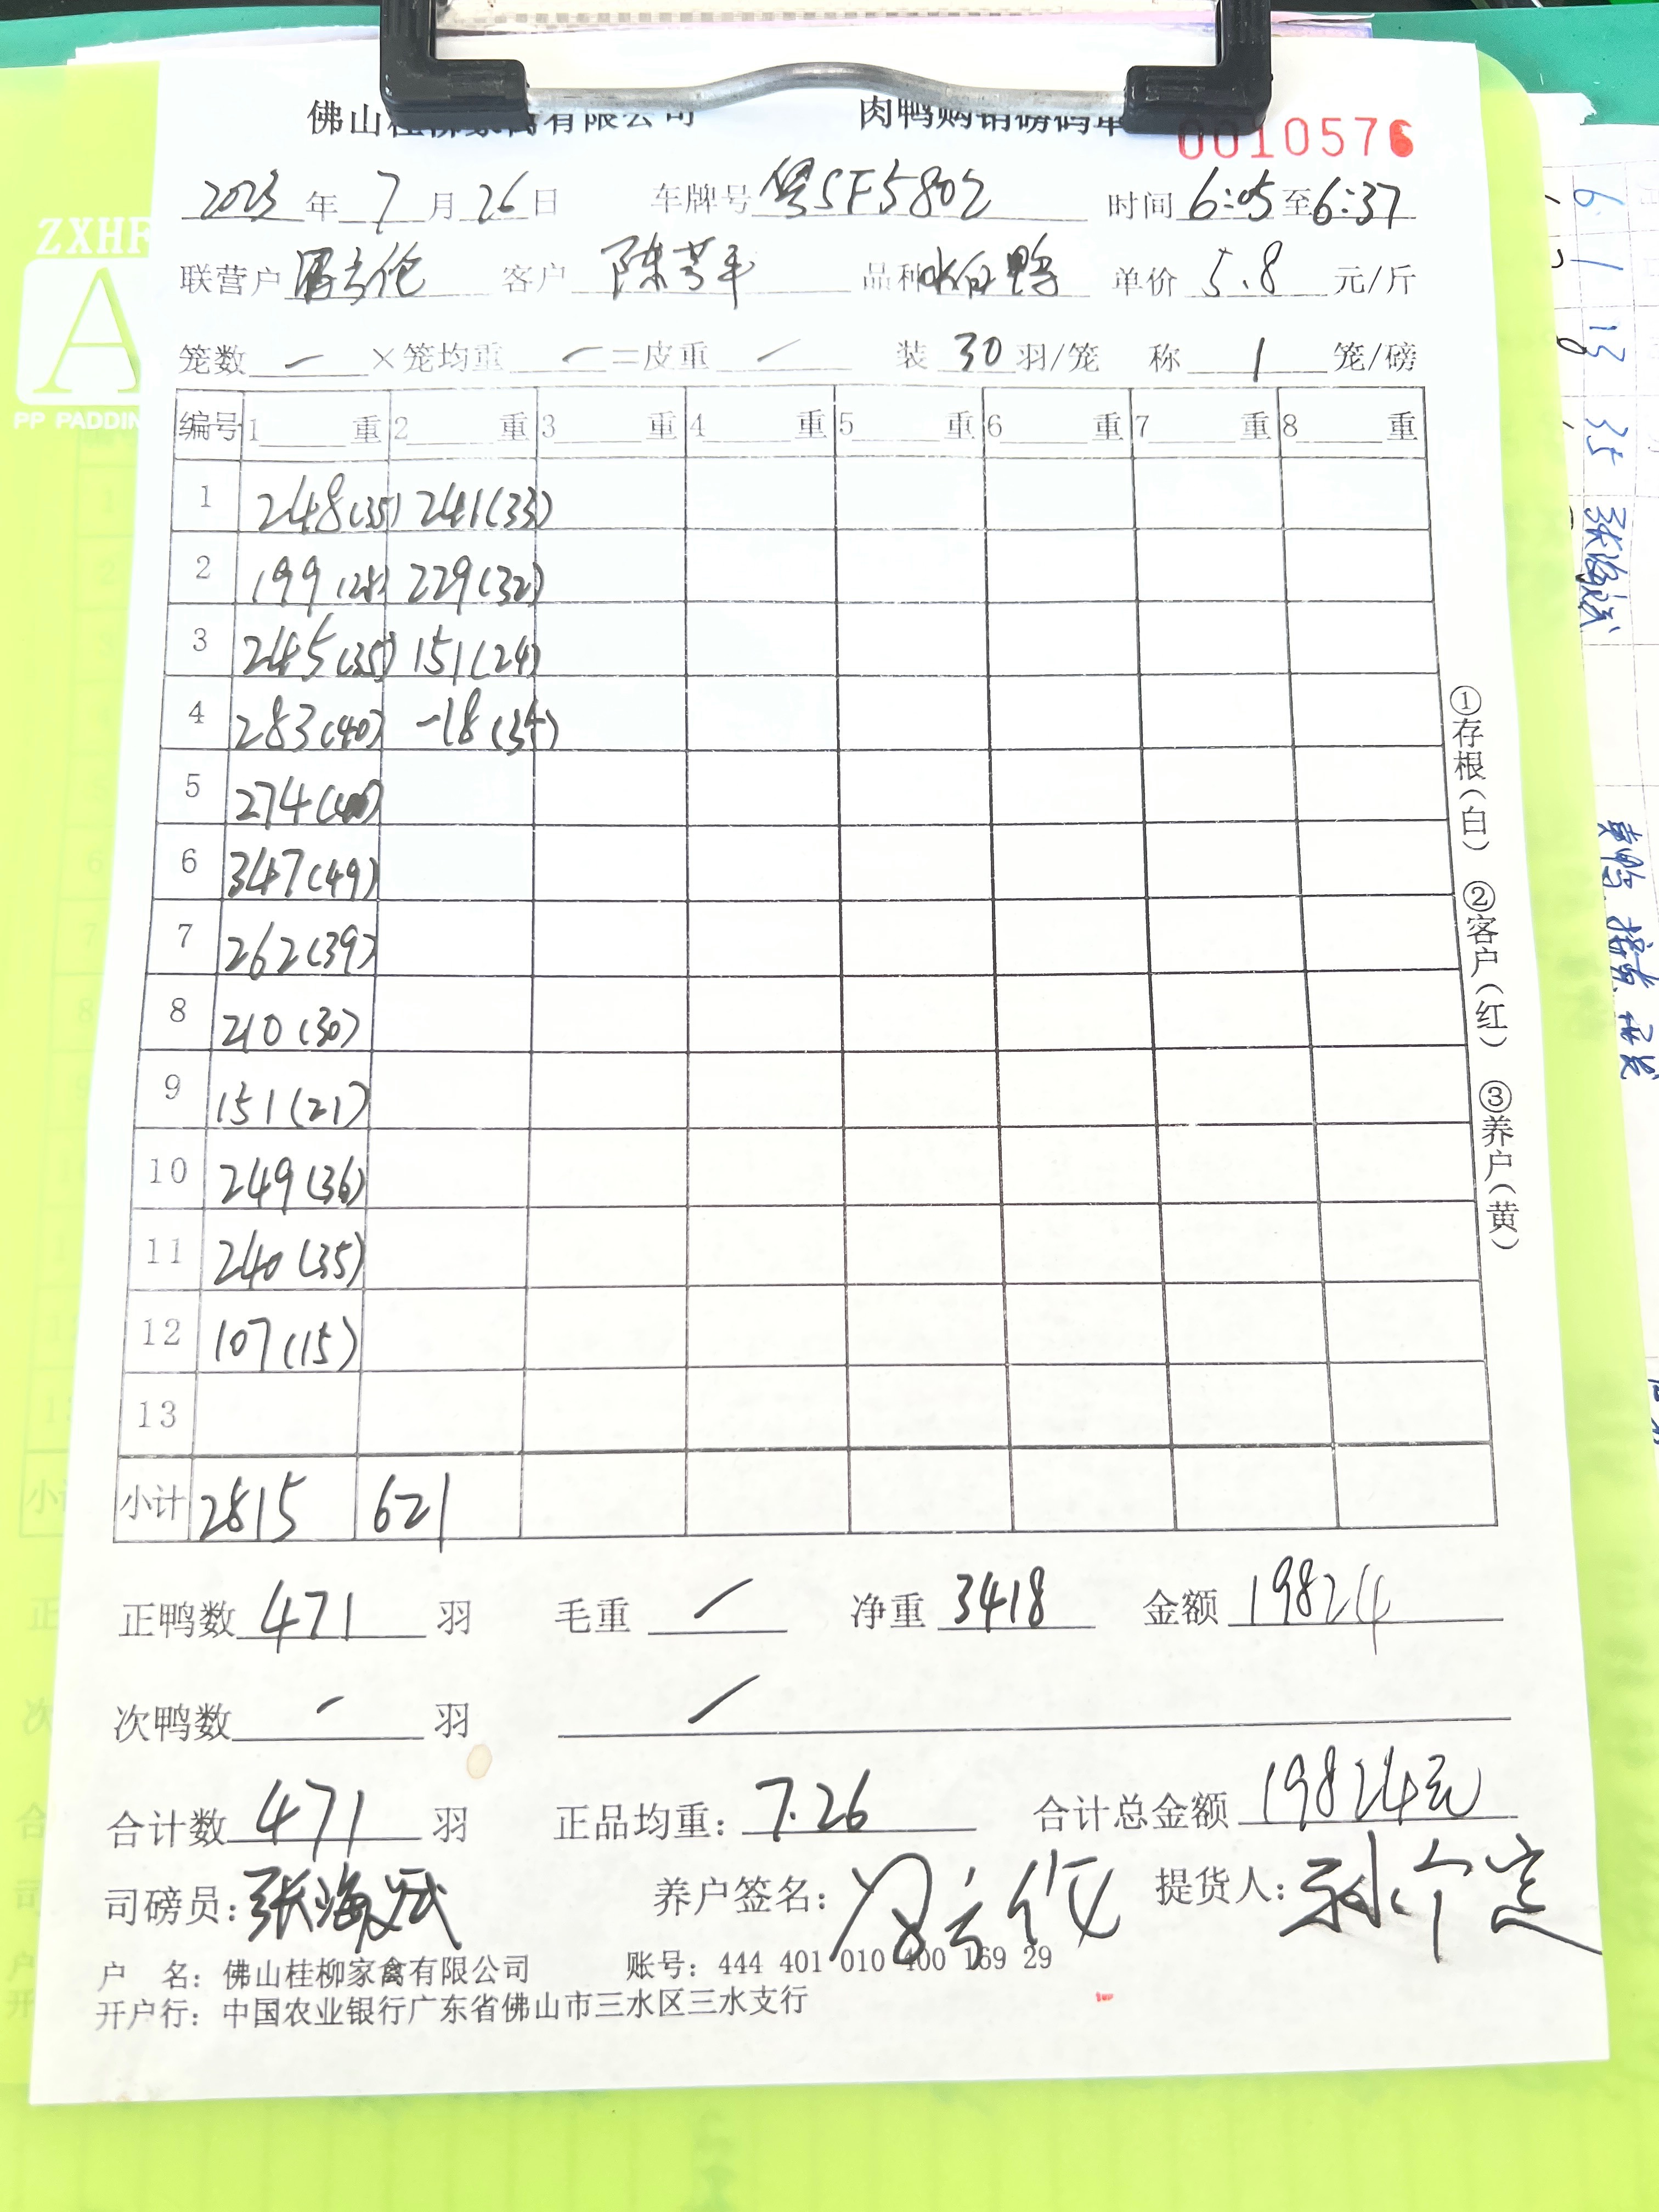 佛山桂柳家禽有限公司 肉鸭购销磅码单 0010576
2023年7月26日 车牌号粤SF5802 时间6:05至6:37
联营户 客户 陈芳平 品种水白鸭 单价5.8元/斤
笼数 — ×笼均重 — =皮重 — 装30羽/笼 称1笼/磅
编号 1 重 2 重 3 重 4 重 5 重 6 重 7 重 8 重
1 248(35) 241(33)
2 199(28) 229(32)
3 245(35) 151(24)
4 283(40) -18(35)
5 274(40)
6 347(49)
7 262(39)
8 210(30)
9 151(21)
10 249(36)
11 240(35)
12 107(15)
13
小计 2815 621
正鸭数471羽 毛重 / 净重3418 金额19824
次鸭数 — 羽 /
合计数471羽 正品均重：7.26 合计总金额19824元
司磅员：张海斌 养户签名： 提货人：
户 名：佛山桂柳家禽有限公司 账号：444 401 010 400 169 29
开户行：中国农业银行广东省佛山市三水区三水支行
①存根(白) ②客户(红) ③养户(黄)
ZXHF
A
PP PADDIN
6 1 13 35 张海斌